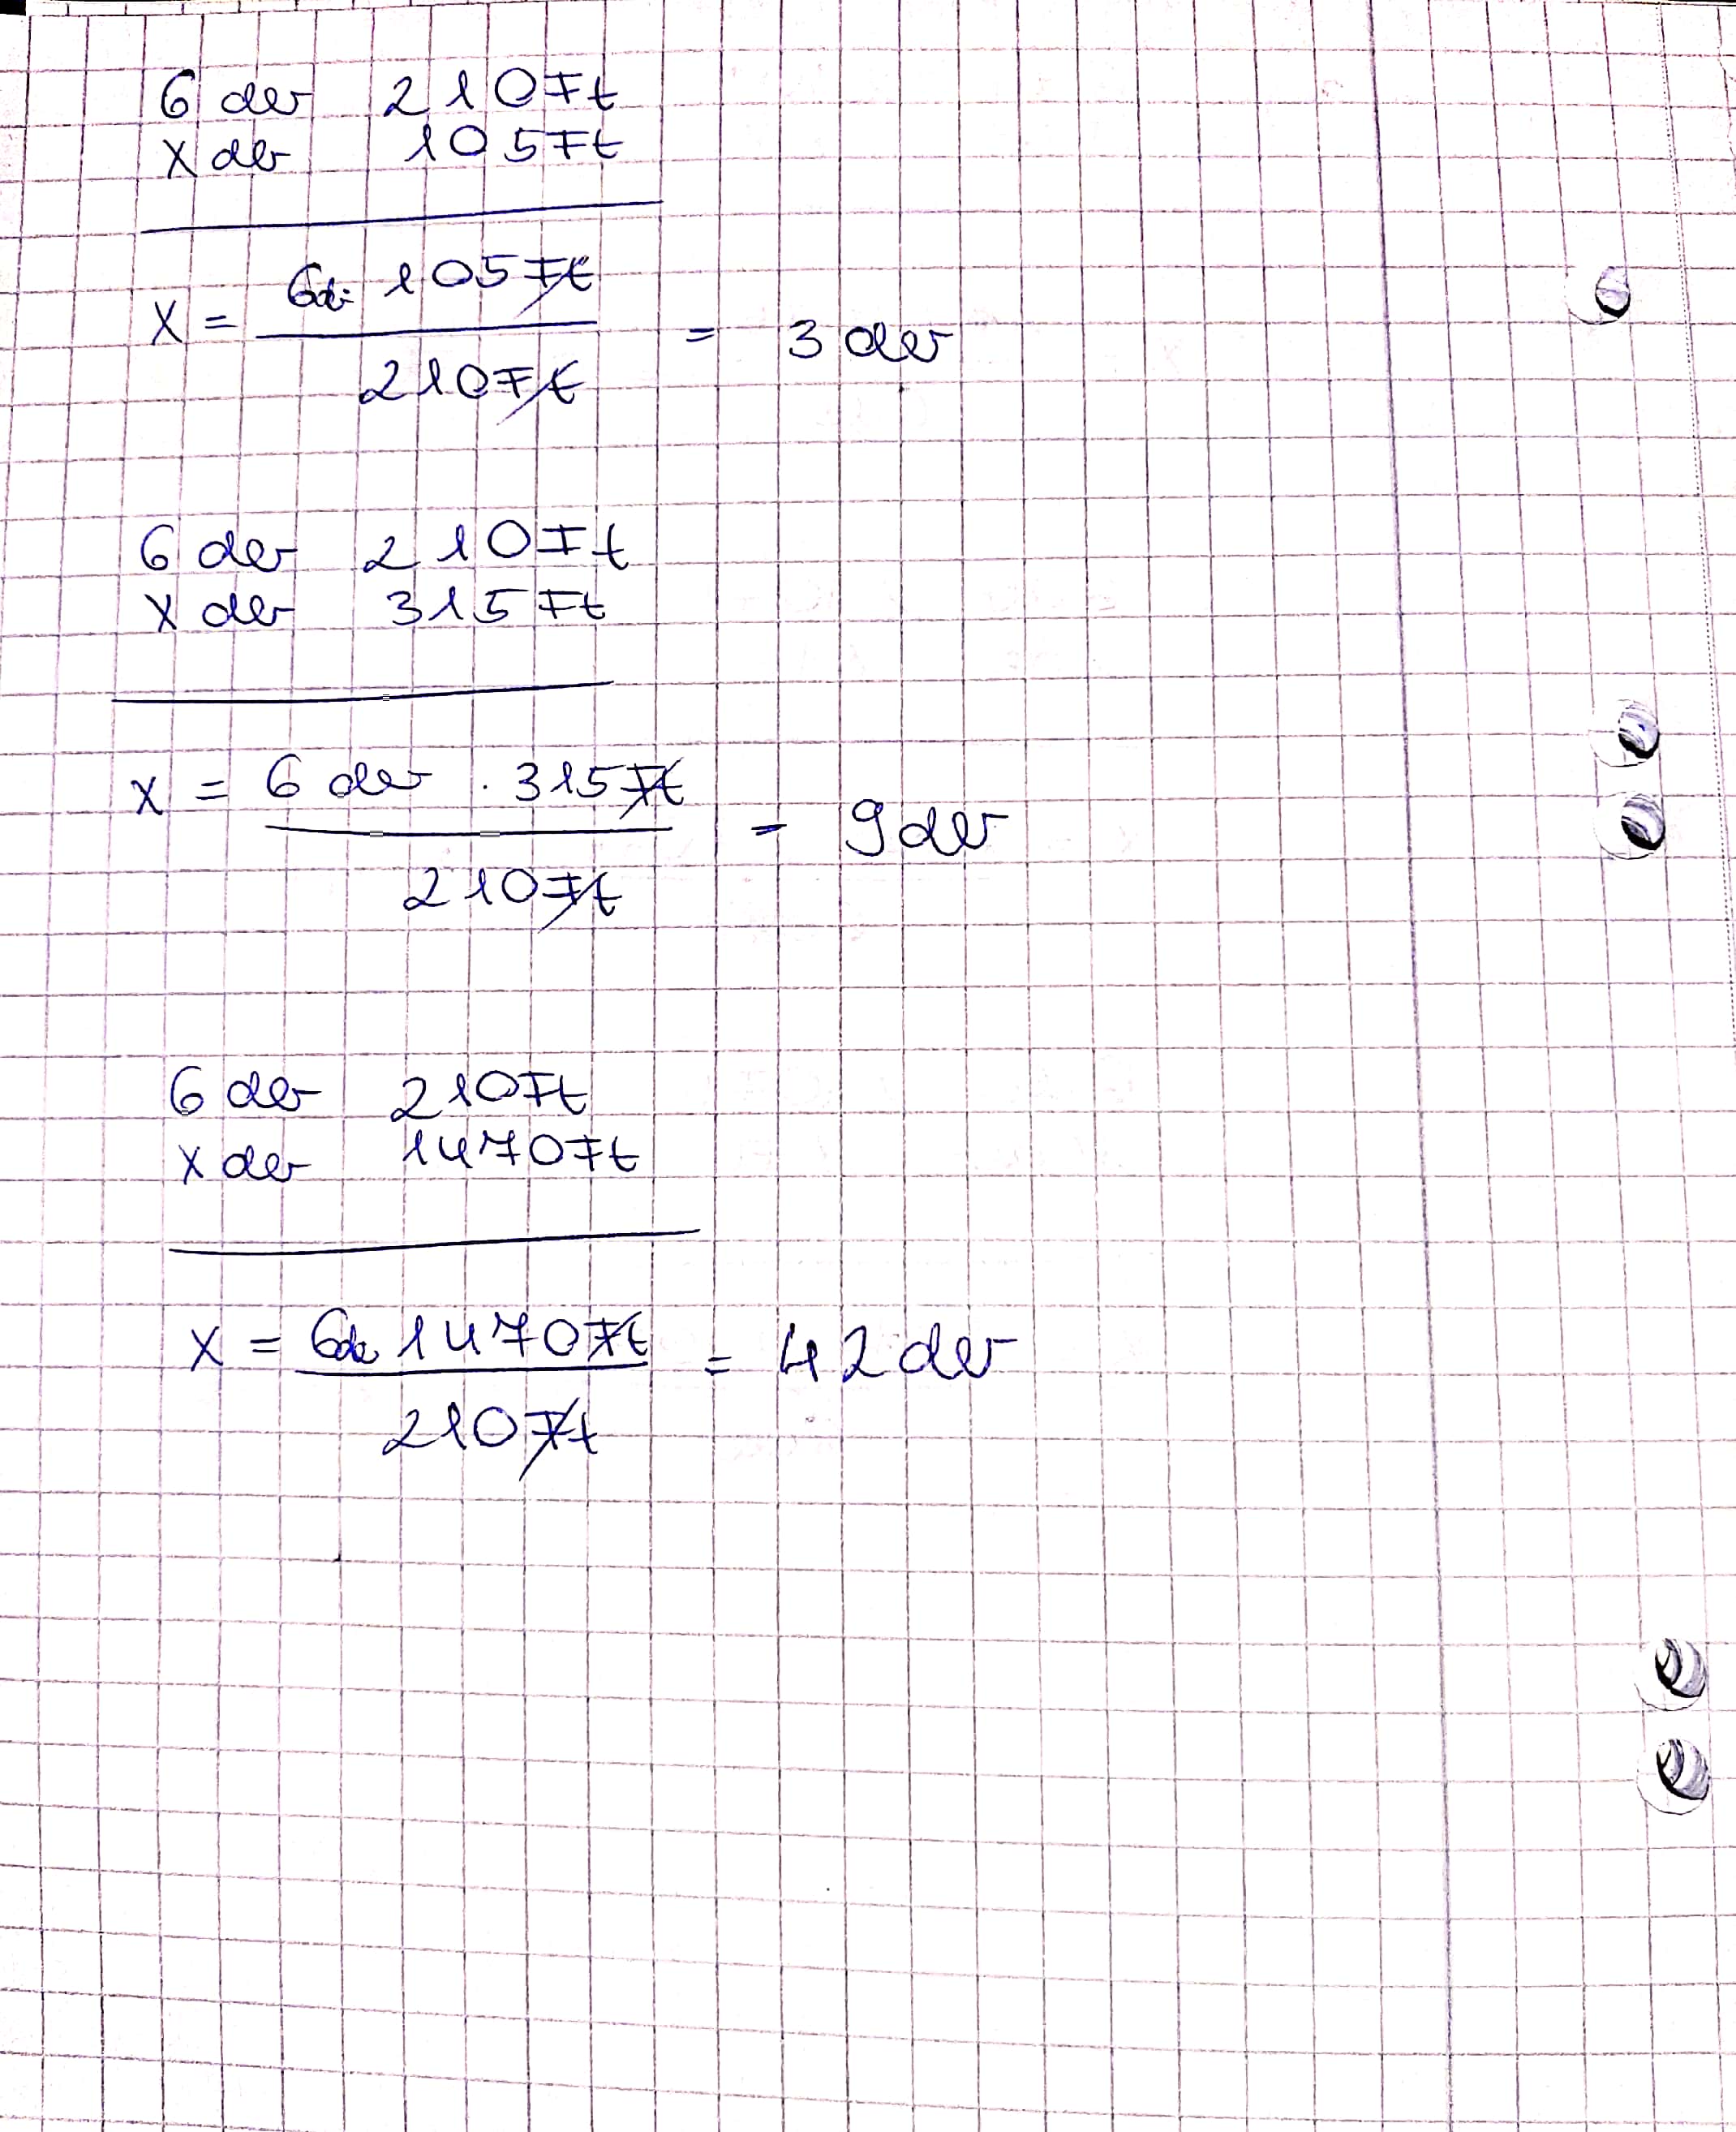 6 der 210 Ft
x der 105 Ft
x = 6 d · 105 Ft / 210 Ft = 3 der
6 der 210 Ft
x der 315 Ft
x = 6 der · 315 Ft / 210 Ft = 9 der
6 der 210 Ft
x der 1470 Ft
x = 6 de 1470 Ft / 210 Ft = 42 der